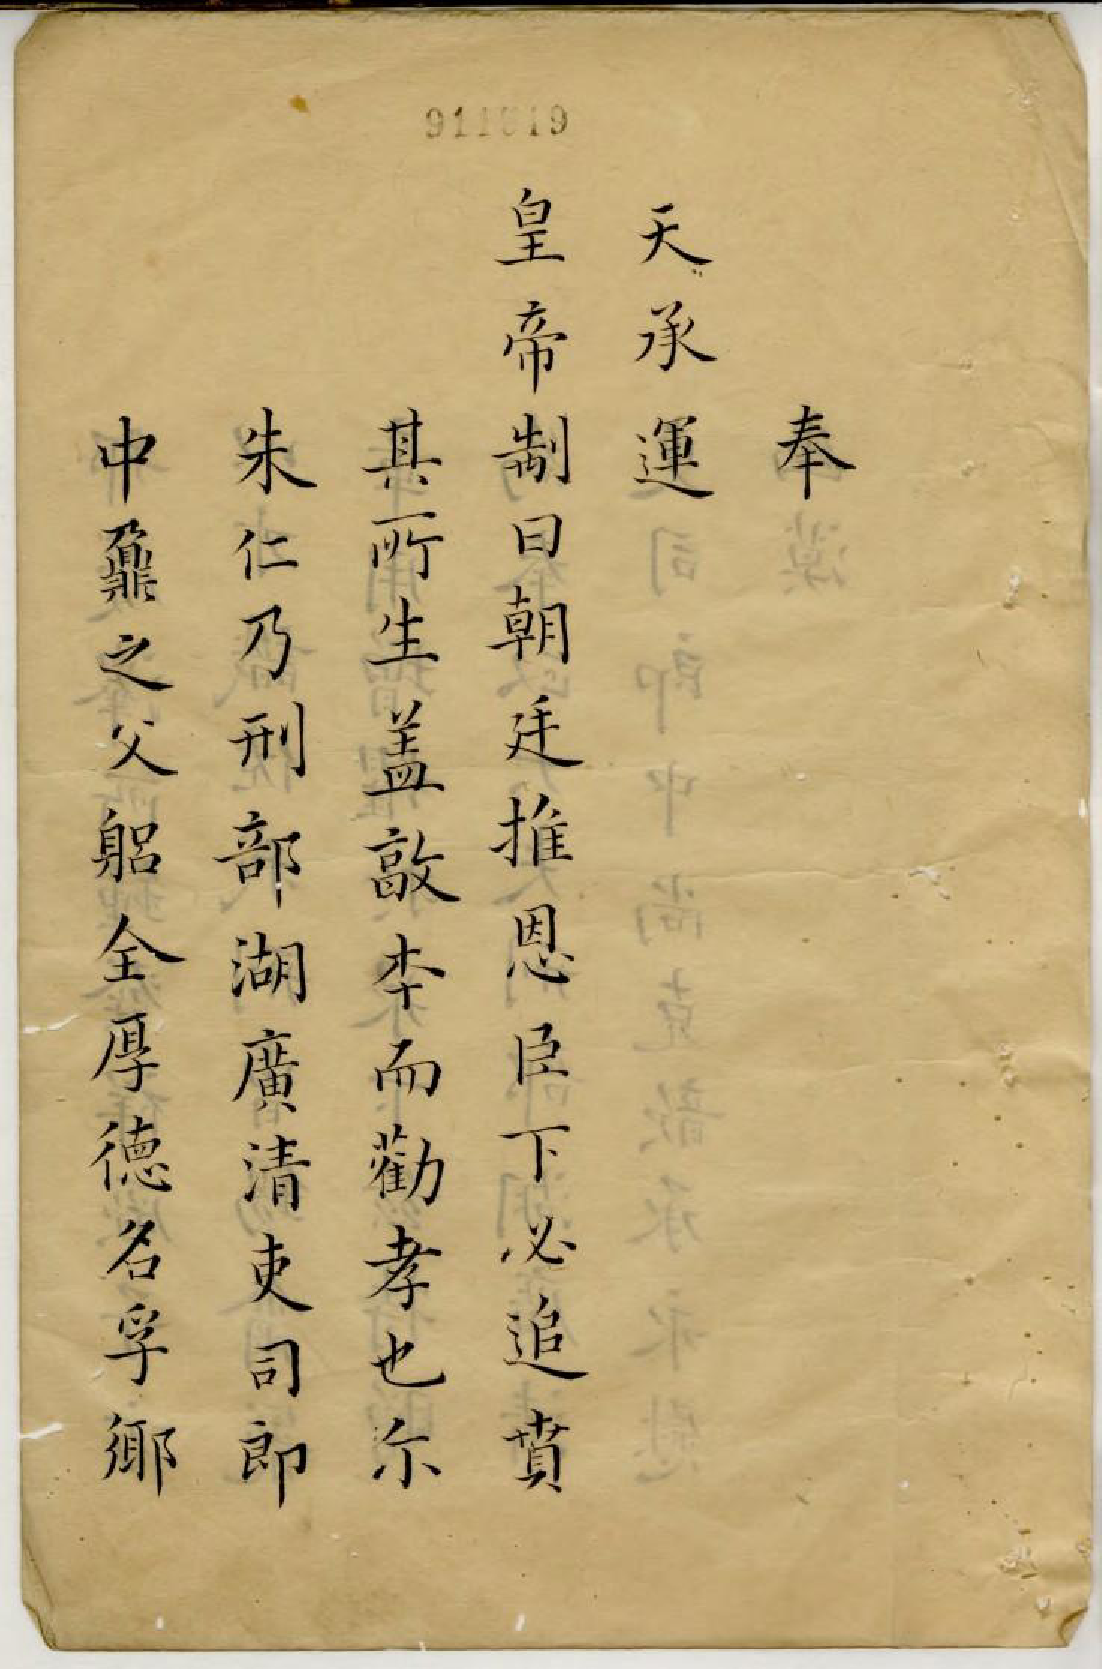 911019
奉
天承運
皇帝制曰朝廷推恩臣下必追賁
其所生盖敦本而勸孝也尒
朱仁乃刑部湖廣清吏司郎
中鼐之父躬全厚德名孚鄉